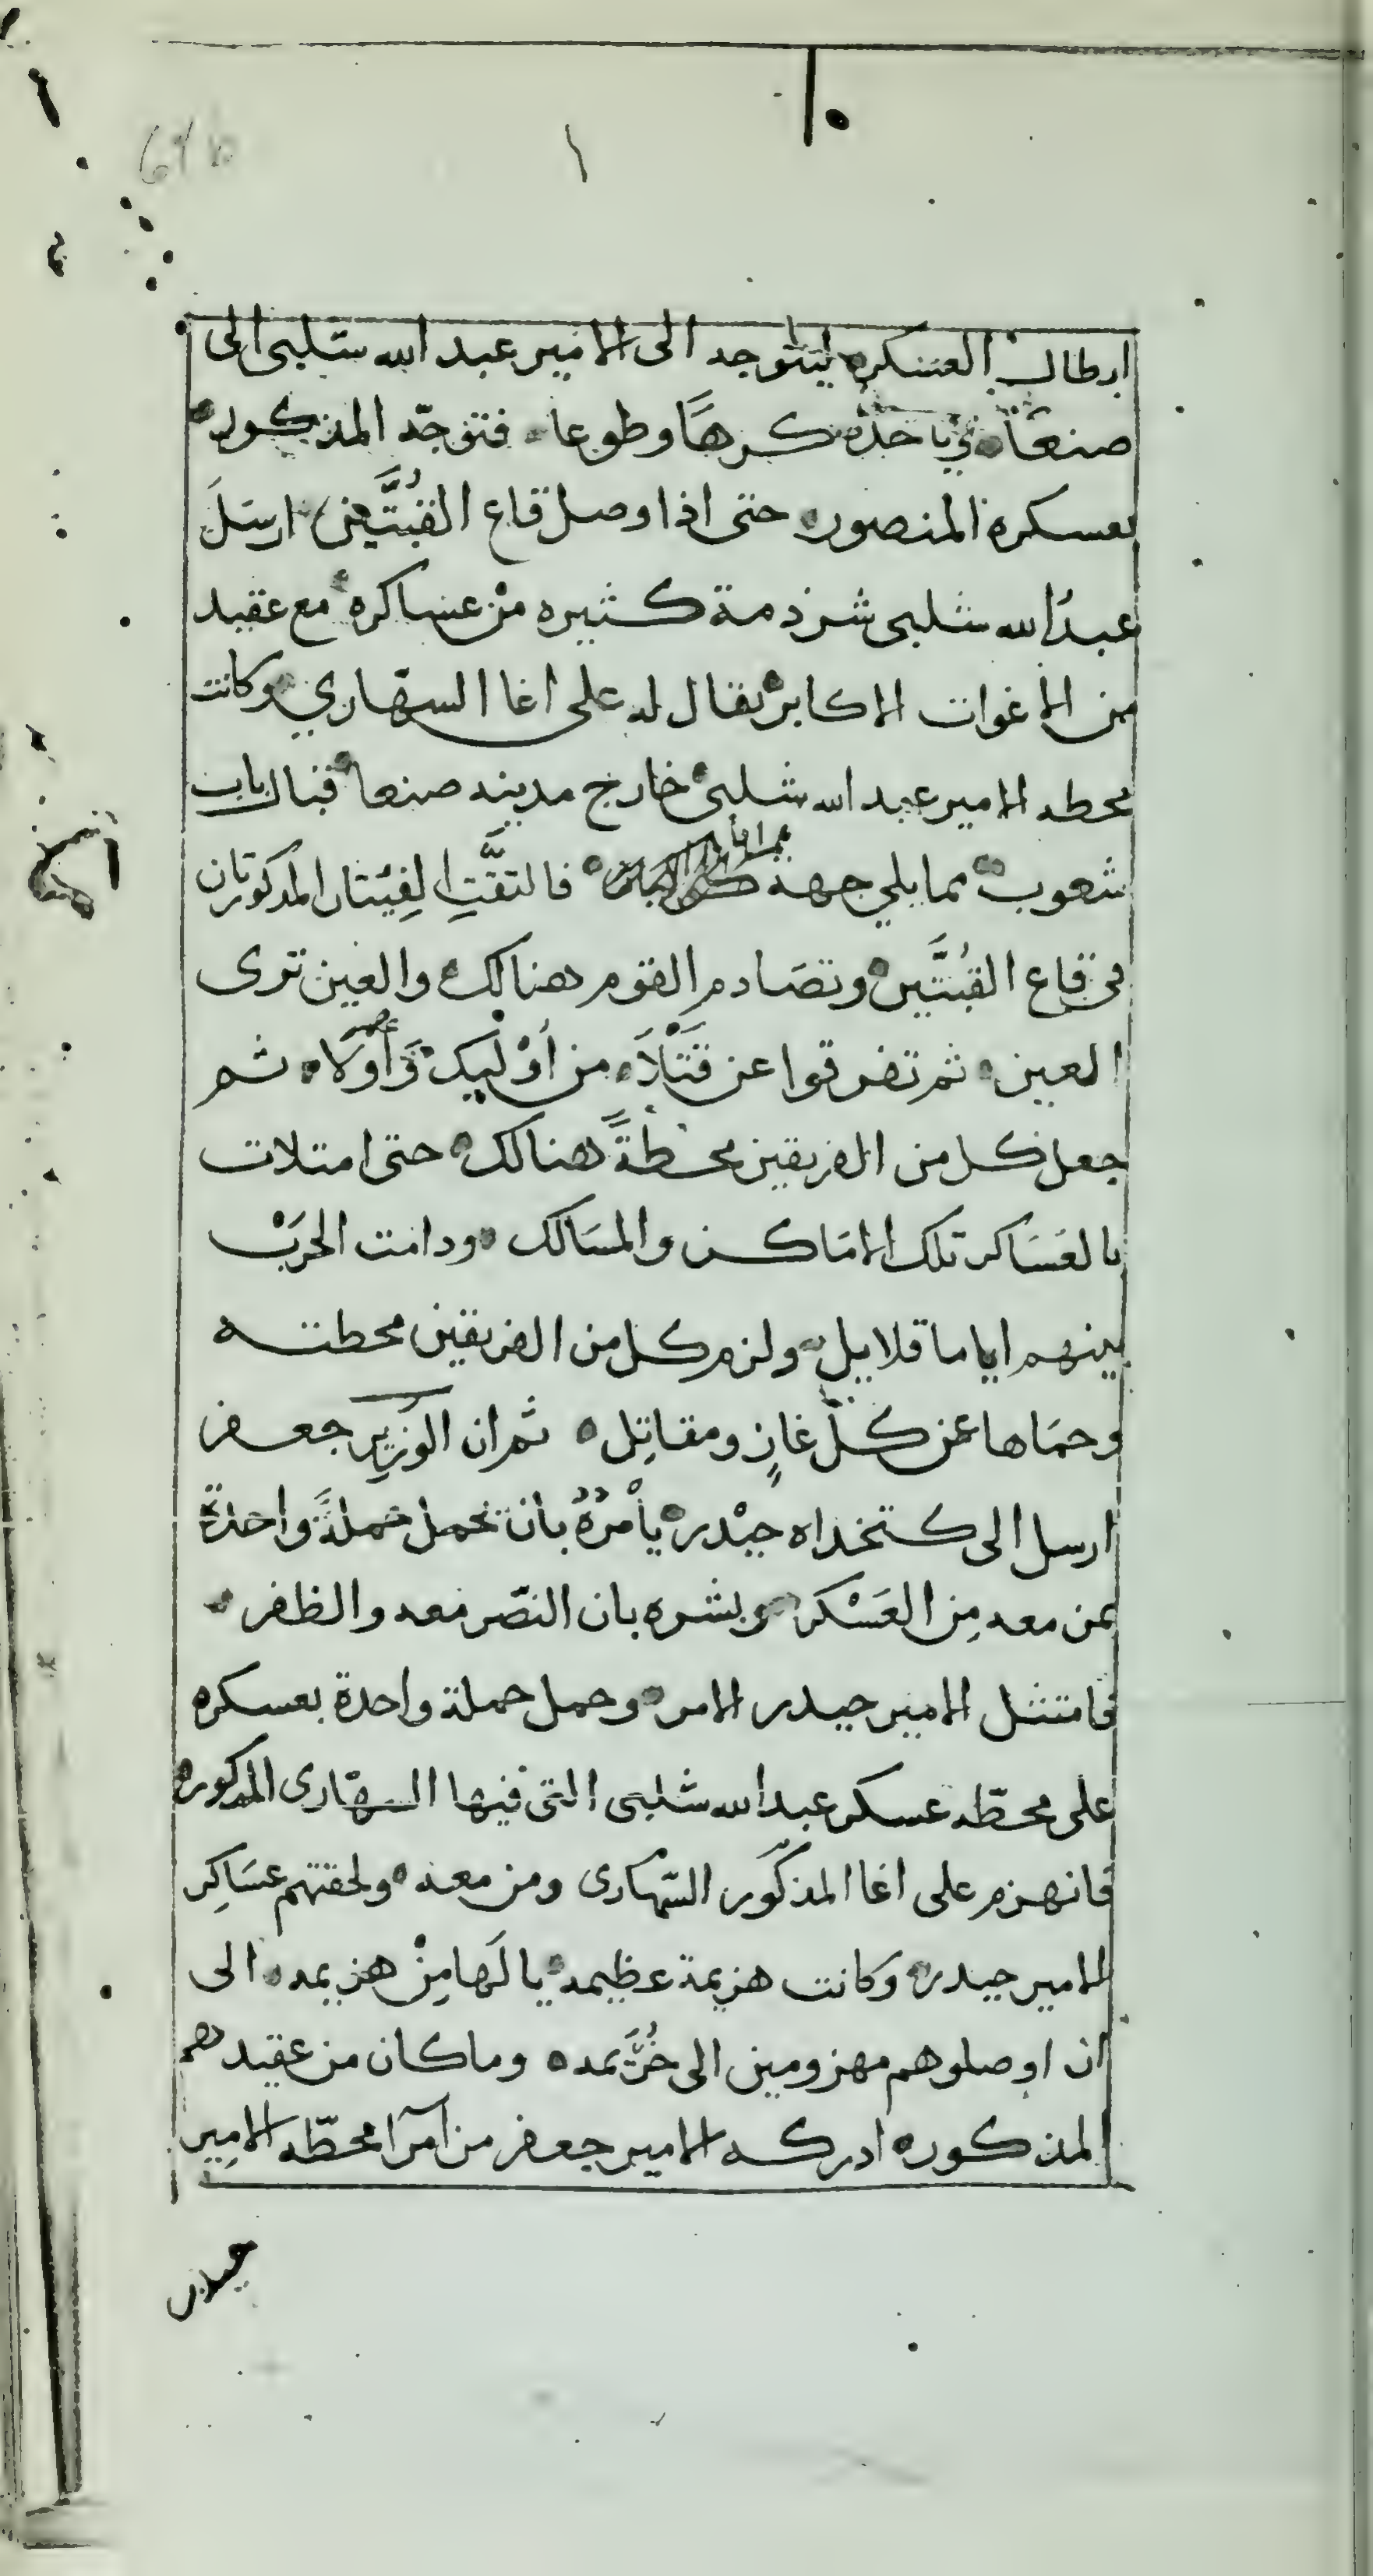 ابطال العسكره ليتوجه الى الامير عبد الله شلبى الى
صنعا ياخذه كرهًا وطوعا فتوجّه المذكور
بعسكره المنصور حتى اذا وصل قاع القُبتَّين ارسَلَ
عبدُ الله شلبى شرذمة كثيره مْن عساكره مع عقيد
من الاغوات الاكابر يقال له على اغا السهّاري وكانت
محطه الامير عبد الله شلبى خارج مدينه صنعا قبال باب
شعوب مما يلي جهة فالتقَّتِ الفِئتان المذكورتان
فى قاع القُبتَّين وتصَادم القوم هنالك والعين ترى
العين ثم تفرقوا عن قَتْلَاَ من اُوْلَيك وَأوَلاه ثم
جعل كل من الفريقين محطةً هنالك حتى امتلات
بالعَسَاكر تلك الامَاكن والمسَالك ودامت الحَرَبْ
بينهم اياما قلايل ولزم كل من الفريقين محطته
وحمَاها عن كلّ غازٍ ومقاتِل ثم ان الوَزِيرِ جعفر
ارسل الى كتخداه حيْدر يأْمرُهُ بان تحمل حملةً واحدةً
بمن معه مِن العَسْكر وبشره بان النصّر معه والظفر
فامتثل الامير حيدر الامر وحمل حملة واحدة بعسكره
على محطّه عسكر عبد الله شلبى التى فيها السهّارى المذكور
فانهزم على اغا المذكَور السّهارى ومن معه ولحقتهم عسَاكِر
الامير حيدر وكانت هزيمة عظيمه يالَها مِنْ هزيمه الى
ان اوصلوهم مهزومين الى خُزَيمه وما كان من عقيدهم
المذكور ادركه الامير جعفر من آمرا محطّه الامِير
حيدر